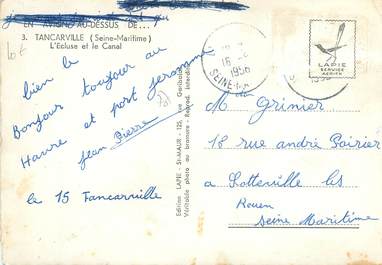 EN AVIONS AU-DESSUS DE...
3. TANCARVILLE (Seine-Maritime)
L'Ecluse et le Canal
10 €
bien le toujour au
Bonjour
Havre et port jerome
jean Pierre
le 15 Tancarville
Edition LAPIE - St-MAUR - 125, rue Garibaldi
Véritable photo au bromure - Reprod. interdite
18
1956
SEINE
LAPIE
SERVICE
AERIEN
M Grinier
18 rue andré Poirier
a Sotteville les
Rouen
Seine Maritime